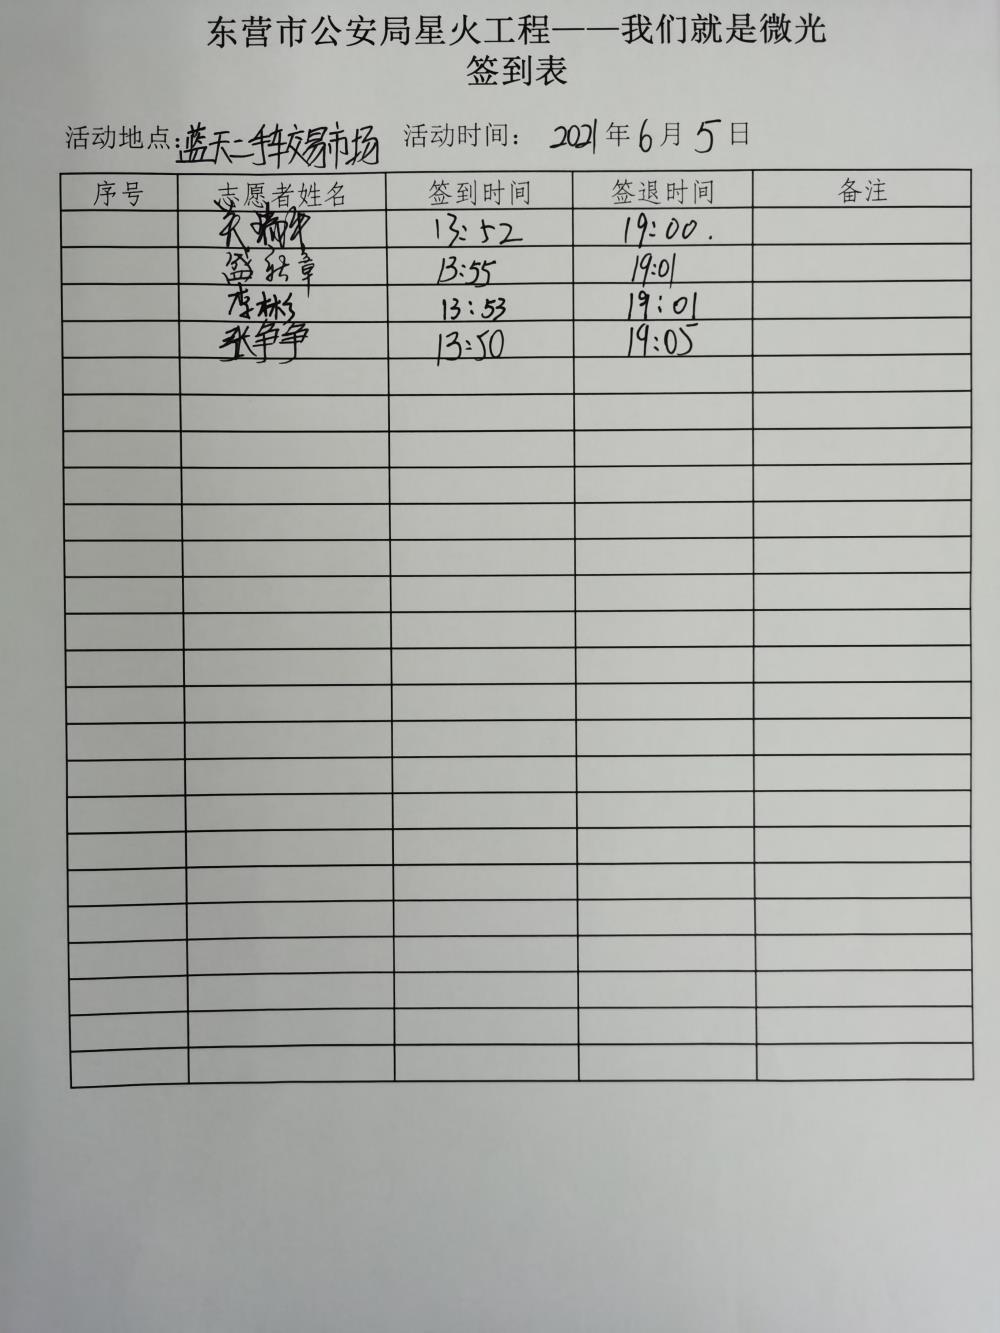 东营市公安局星火工程——我们就是微光
签到表
活动地点:蓝天二手车交易市场 活动时间: 2021年6月5日
序号 志愿者姓名 签到时间 签退时间 备注
13:52 19:00.
盛 章 13:55 19:01
李彬 13:53 19:01
张争争 13:50 19:05